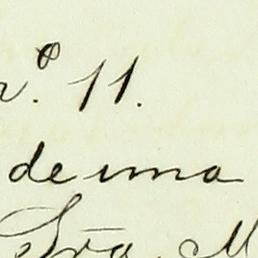 nº. 11.
de uma
Sra. M